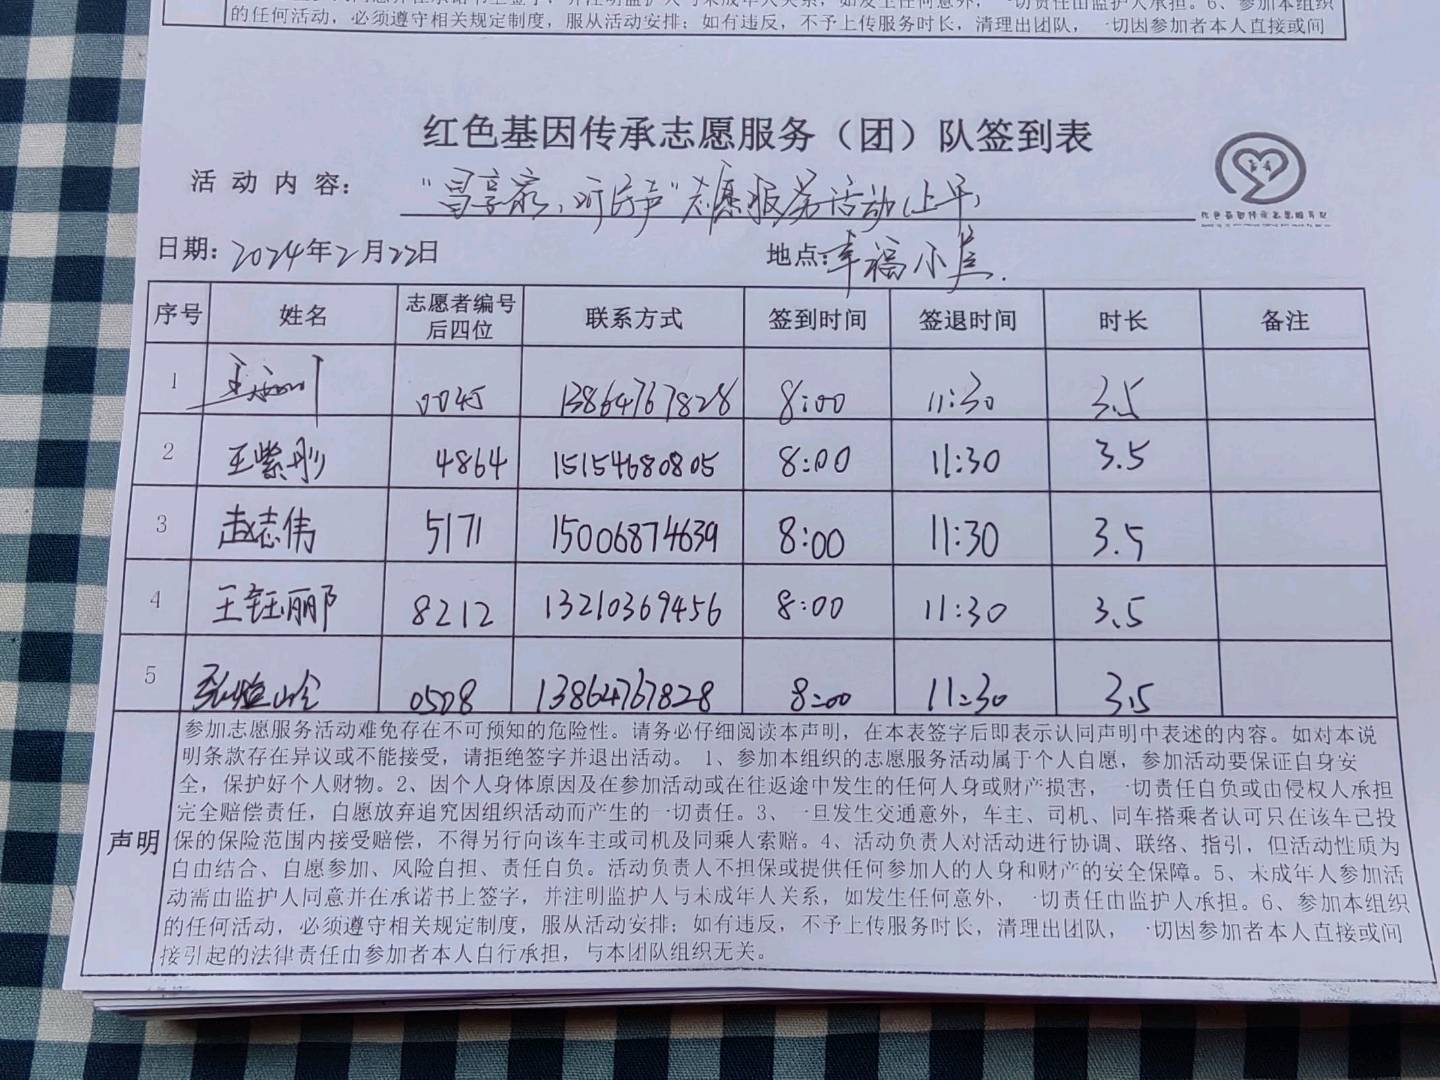 的任何活动，必须遵守相关规定制度，服从活动安排；如有违反，不予上传服务时长，清理出团队，一切因参加者本人直接或间
红色基因传承志愿服务（团）队签到表
活动内容： 志愿服务活动(上午)
日期：2024年2月22日 地点：幸福小
序号 姓名 志愿者编号后四位 联系方式 签到时间 签退时间 时长 备注
1 0045 13864767828 8:00 11:30 3.5
2 王紫彤 4864 15154680805 8:00 11:30 3.5
3 赵志伟 5171 15006874639 8:00 11:30 3.5
4 王钰丽 8212 13210369456 8:00 11:30 3.5
5 0508 13864767828 8:00 11:30 3.5
声明
参加志愿服务活动难免存在不可预知的危险性。请务必仔细阅读本声明，在本表签字后即表示认同声明中表述的内容。如对本说
明条款存在异议或不能接受，请拒绝签字并退出活动。 1、参加本组织的志愿服务活动属于个人自愿，参加活动要保证自身安
全，保护好个人财物。2、因个人身体原因及在参加活动或在往返途中发生的任何人身或财产损害，一切责任自负或由侵权人承担
完全赔偿责任，自愿放弃追究因组织活动而产生的一切责任。3、一旦发生交通意外，车主、司机、同车搭乘者认可只在该车已投
保的保险范围内接受赔偿，不得另行向该车主或司机及同乘人索赔。4、活动负责人对活动进行协调、联络、指引，但活动性质为
自由结合、自愿参加、风险自担、责任自负。活动负责人不担保或提供任何参加人的人身和财产的安全保障。5、未成年人参加活
动需由监护人同意并在承诺书上签字，并注明监护人与未成年人关系，如发生任何意外，一切责任由监护人承担。6、参加本组织
的任何活动，必须遵守相关规定制度，服从活动安排；如有违反，不予上传服务时长，清理出团队，一切因参加者本人直接或间
接引起的法律责任由参加者本人自行承担，与本团队组织无关。